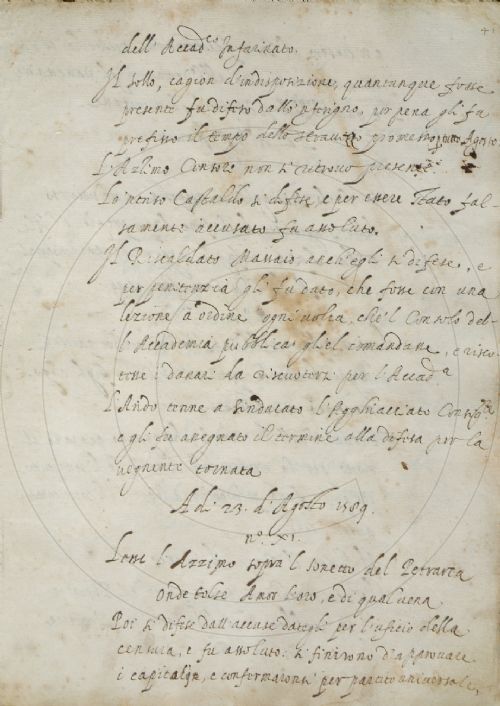 41
dell'Accad.co Infarinato.
Il sollo, cagion d'indisposizione, quantunque fosse
presente fu difeso dallo'nferigno, per pena gli fu
prefisso il tempo dello stravizzo promesso per tutto Agosto.
L'Azzimo Consolo non si ritrovò presente.
Lo'ntriso Castaldo si difese, e per essere stato fal-
samente accusato fu assoluto.
Il Riscaldato Massaio, anch'egli si difese, e
per penitenzia gli fu dato, che fosse con una
lezione a ordine ogni volta, che'l Consolo del-
l'Accademia pubblica gliel comandasse, e risco-
tesse i danari da riscuotersi per l'Accad.a
L'Ardo tenne a sindacato l'Agghiacciato
e gli fu assegnato il termine alla difesa per la
vegnente tornata
A dì 23. d'Agosto 1589.
n.o XI.
Lesse l'Azzimo sopra'l sonetto del Petrarca
Onde tolse Amor l'oro, e di qual vena
Poi si difese dall'accuse dategli per l'uficio della
censura, e fu assoluto. si finirono d'approvare
i capitoli, e confermaronsi per partito universale,